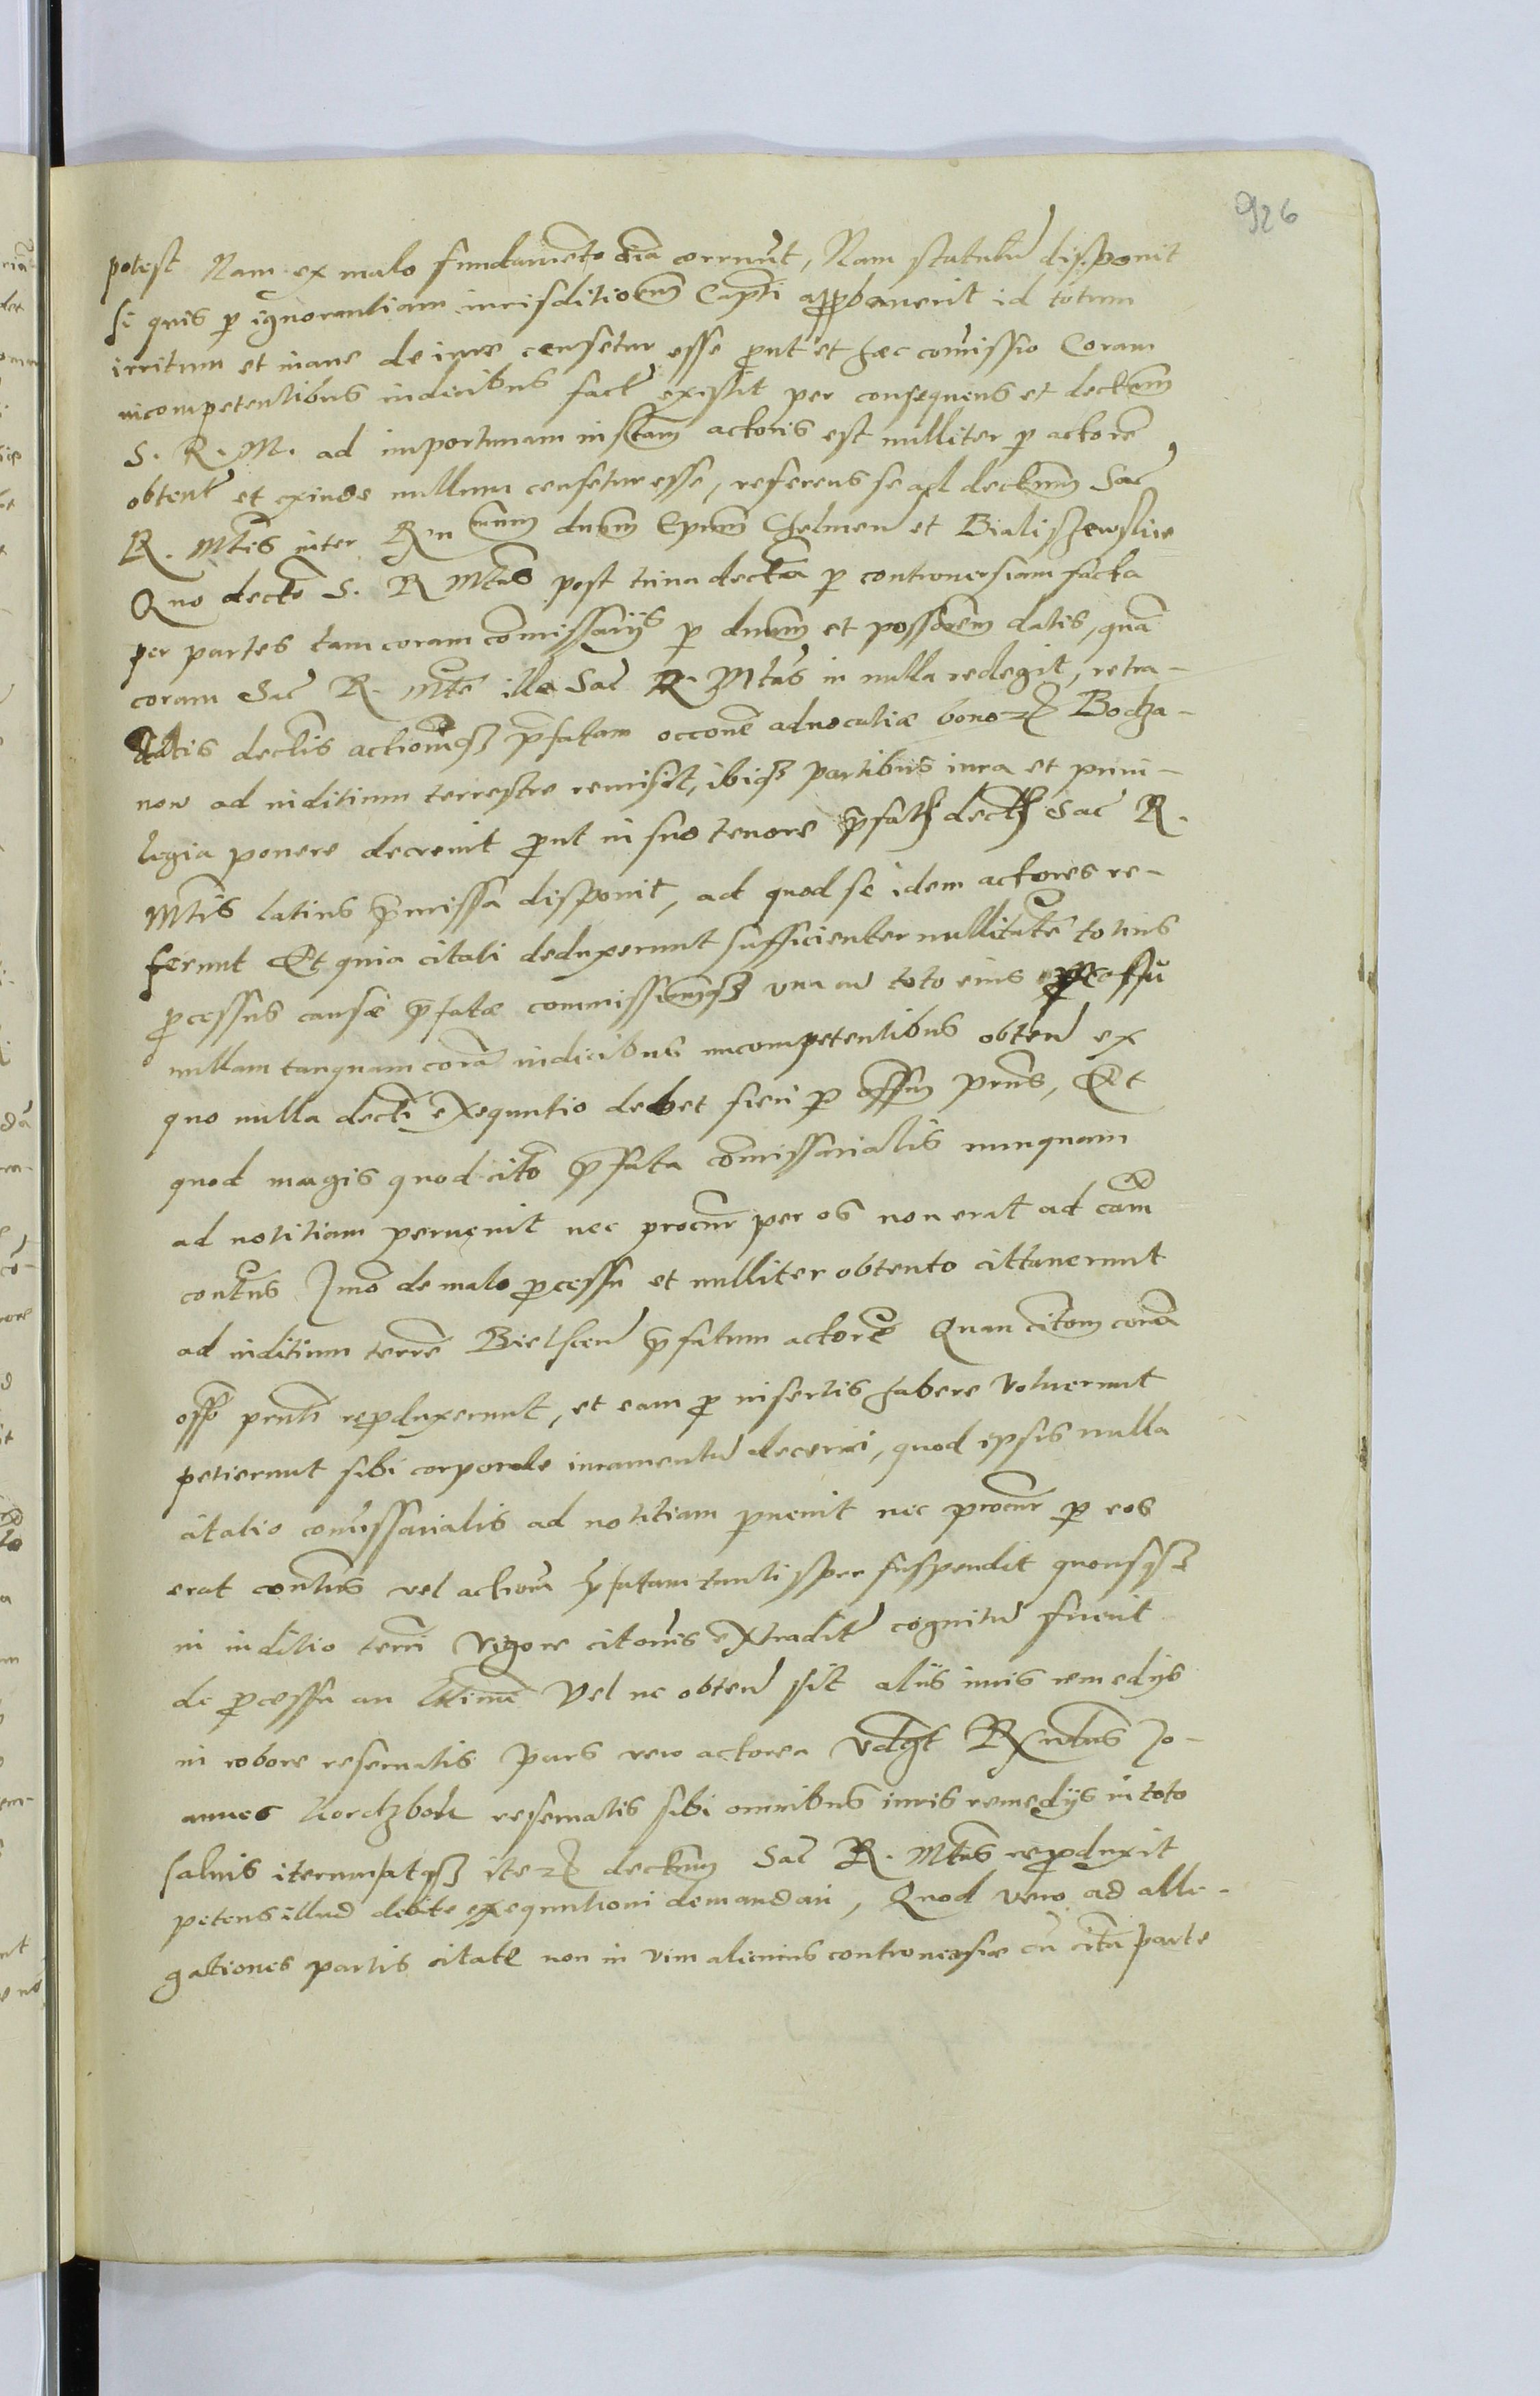 926
potest Nam ex malo fundamēto oīa corruūt, Nam statutū disponit
si quis p ignorantiam iurisditionem Capti approbauerit id totum
irritum et inane de iure censetur esse prout et haec comissio Coram
incompetentibus iudicibus fact existit per consequens et dectum
S. R. M. ad importunam instam actoris est nulliter p actorē
obtent et exinde nullum censetur esse, referens se ad dectum Sac
R. Mtis inter Rn mum dnum Epum Chelmen et Bialiszewskie
Quo decto S. R Mtas post trina decta p controuersiam facta
per partes tam coram comissarijs p dnum et possorem datis, quā
coram Sac R. Mte illa Sac R. Mtas in nulla redegit, retra-
ctatis dectis actionemq pfatam occōne aduocatiae bonor Bocha-
now ad iuditium terrestre remisit, ibiq partibus iura et priui-
legia ponere decreuit prout in suo tenore pfat dect Sac R.
Mtis latius pmissa disponit, ad quod se idem actores re-
ferunt Et quia citati deduxerunt sufficienter nullitatē totius
pcessus causae pfatae commissionemq vna cū toto eius pcessu
nullam tanquam corā iudicibus incompetentibus obten ex
quo nulla decti exequutio debet fieri p offium prns, Et
quod magis quod cito pfata comissarialis nunquam
ad notitiam peruenit nec procur per os non erat ad eam
contus Imo de malo pcessu et nulliter obtento cittauerunt
ad iuditium terre Bielscen pfatum actorē Quam citom corā
offo prnti repduxerunt, et eam p insertis habere voluerunt
petierunt sibi corporale iuramentū decerni, quod ipsis nulla
citatio comissarialis ad notitiam puenit nec procur p eos
erat contus vel actiom pfatam tantisper suspendit quousq
in iuditio terri vigore citonis extradit cognitū fuerit
de pcessu an ltime vel ne obten sit alijs iuris remedijs
in robore reseruatis Pars vero actorea vdcgt Rx mtus Jo-
annes Korczbok reseruatis sibi omnibus iuris remedijs in toto
saluis iterum atq iter dectum Sac R. Mtis repduxit
petens illud debite exequutioni demandari, Quod vero ad alle-
gationes partis citatae non in vim alicuius controuersiae cū citta parte